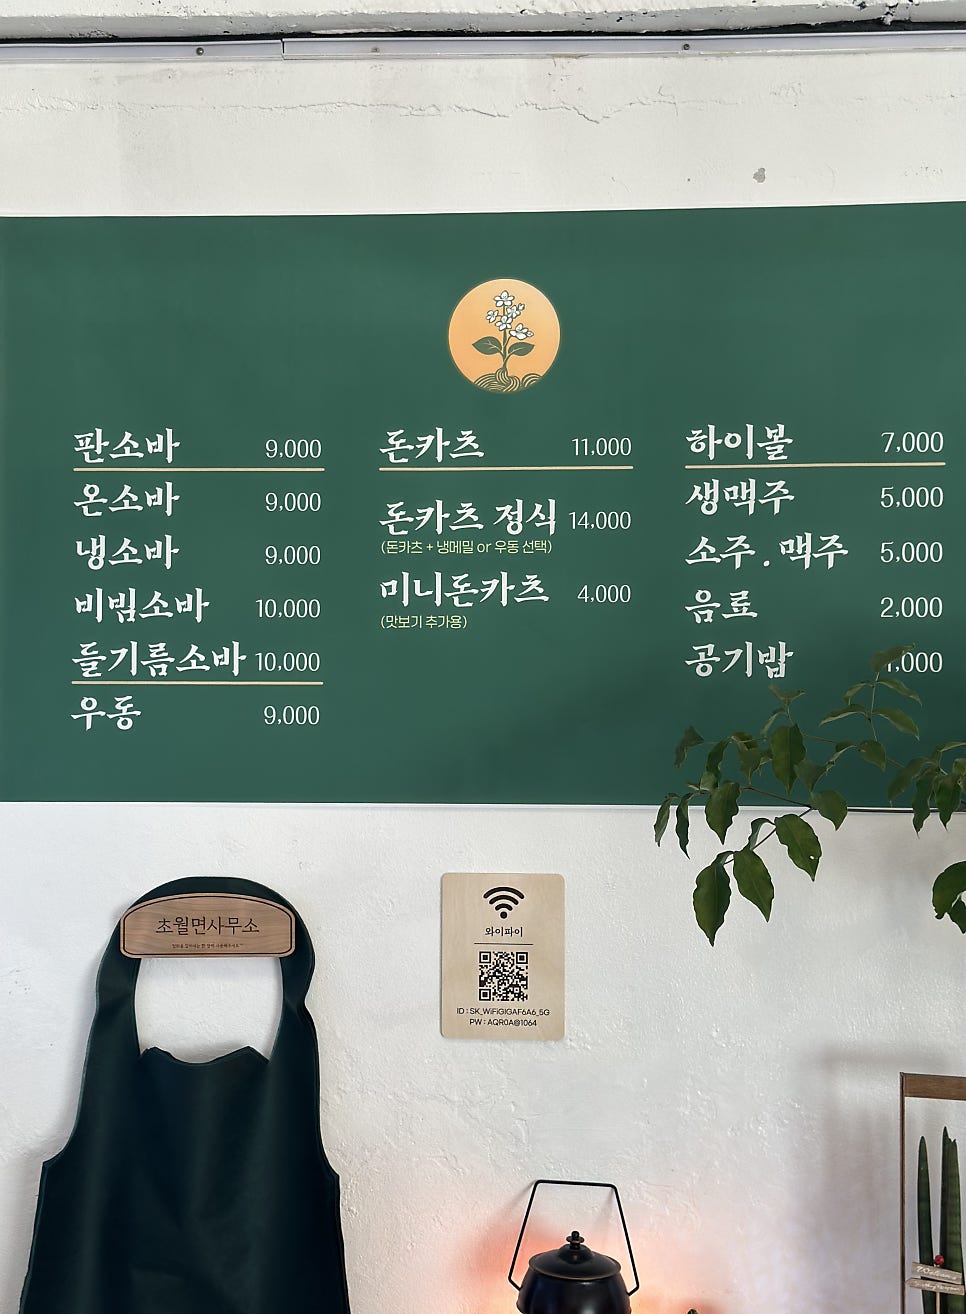 판소바 9,000
온소바 9,000
냉소바 9,000
비빔소바 10,000
들기름소바 10,000
우동 9,000
돈카츠 11,000
돈카츠 정식 14,000
(돈카츠 + 냉메밀 or 우동 선택)
미니돈카츠 4,000
(맛보기 추가용)
하이볼 7,000
생맥주 5,000
소주 . 맥주 5,000
음료 2,000
공기밥 1,000
초월면사무소
와이파이
ID : SK_WiFiGIGAF6A6_5G
PW : AQR0A@1064
Welcome